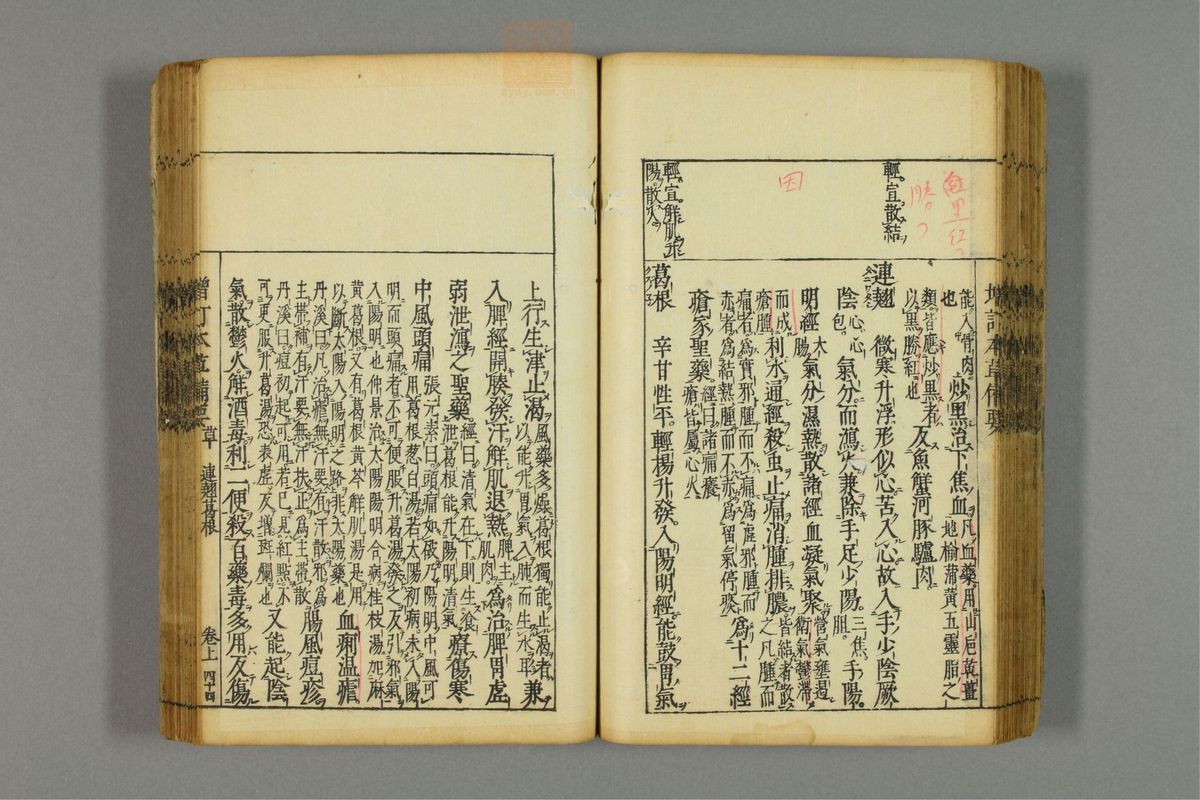 輕宣散結
輕宣解肌升
陽散火
能入骨肉
也
炒黑治下焦血
凡血藥用山巵黃薑
地榆蒲黃五靈脂之
類皆應炒黑者
以黑勝紅也
反魚蟹河豚驢肉
連翹 微寒升浮形似心苦入心故入手少陰厥
陰心包心氣分而瀉火兼除手足少陽三焦膽手陽
明經大腸氣分濕熱散諸經血凝氣聚營氣壅遏衛氣鬱滯
而成瘡腫利水通經殺虫止痛消腫排膿皆結者散之凡腫而
痛者為實邪腫而不痛為虛邪腫而
赤者為結熱腫而不赤為留氣停痰為十二經
瘡家聖藥經曰諸痛癢瘡皆屬心火
葛根 辛甘性平輕揚升發入陽明經能鼓胃氣
上行生津止渴風藥多燥葛根獨能止渴者以能升胃氣入肺而生水耳兼
入脾經開腠發汗解肌退熱脾主肌肉為治脾胃虛
弱泄瀉之聖藥經曰清氣在下則生飧泄葛根能升陽明清氣療傷寒
中風頭痛張元素曰頭痛如破乃陽明中風可用葛根葱白湯若太陽初病未入陽
明而頭痛者不可便服升葛湯發之反引邪氣
入陽明也仲景治太陽陽明合病桂枝湯加麻
黃葛根又有葛根黃芩解肌湯是用
以斷太陽入陽明之路非太陽藥也血痢温瘧
丹溪曰凡治瘧無汗要有汗散邪為
主帶補有汗要無汗扶正為主帶散腸風痘疹
丹溪曰痘初起可用若已見紅點不
可更服升葛湯恐表虛反增斑爛也又能起陰
氣散鬱火解酒毒利二便殺百藥毒多用反傷
增訂本草備要 草 連翹葛根 卷上 四十四